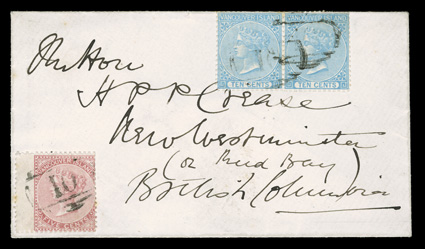 VANCOUVER ISLAND VANCOUVER ISLAND
TEN CENTS TEN CENTS
The Hon
H P P Crease
New Westminster
(or Mud Bay)
British Columbia
VANCOUVER ISLAND
10
FIVE CENTS